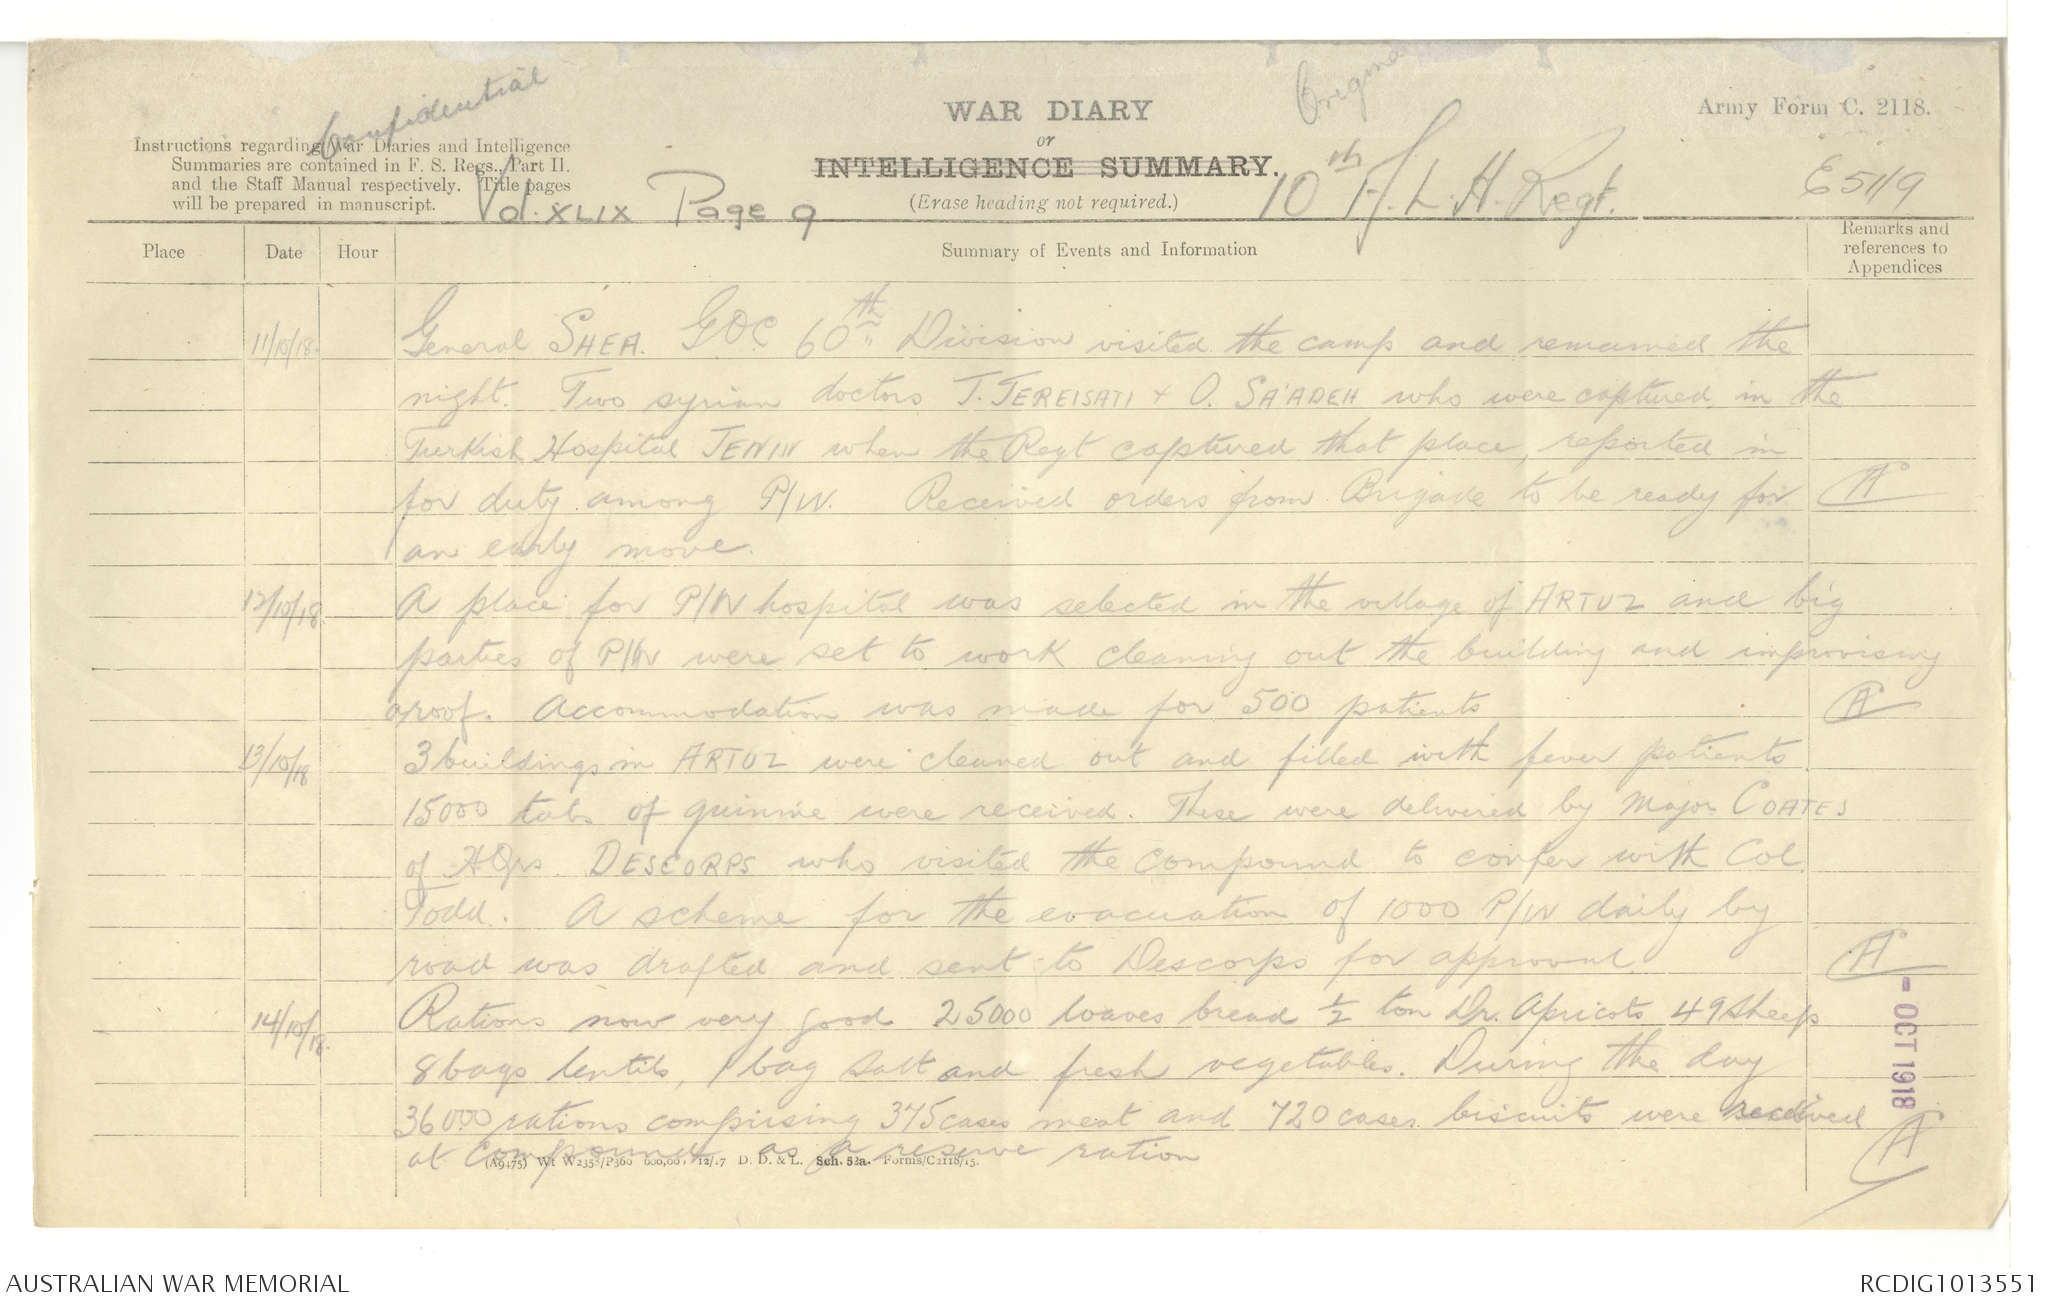 Confidential
Original
WAR DIARY
or
INTELLIGENCE SUMMARY.
(Erase heading not required.)
Army Form C. 2118.
Instructions regarding War Diaries and Intelligence
Summaries are contained in F. S. Regs., Part II.
and the Staff Manual respectively. Title pages
will be prepared in manuscript.
Vol. XLIX Page 9
10th A.L.H. Regt.
E 5119
Place
Date
Hour
Summary of Events and Information
Remarks and
references to
Appendices
11/10/18. General SHEA. GOC 60th Division visited the camp and remained the
night. Two syrian doctors J. JEREISATI + O. SA'ADEH who were captured in the
Turkish Hospital JENIN when the Regt captured that place, reported in
for duty among P/W. Received orders from Brigade to be ready for
an early move.
12/10/18 A place for P/W hospital was selected in the village of ARTUZ and big
parties of P/W were set to work cleaning out the building and improvising
a roof. Accommodation was made for 500 patients
13/10/18 3 buildings in ARTUZ were cleaned out and filled with fever patients
15000 tabs of quinine were received. These were delivered by Major COATES
of HQrs. DESCORPS who visited the compound to confer with Col.
Todd. A scheme for the evacuation of 1000 P/W daily by
road was drafted and sent to Descorps for approval.
14/10/18. Rations now very good 25000 loaves bread ½ ton Dr. Apricots 49 Sheep
8 bags lentils, 1 bag Salt and fresh vegetables. During the day
36000 rations comprising 375 cases meat and 720 cases biscuits were received
at Compound as a reserve ration
- OCT 1918
D. D. & L. Sch. 52a. Forms/C2118/15.
AUSTRALIAN WAR MEMORIAL
RCDIG1013551